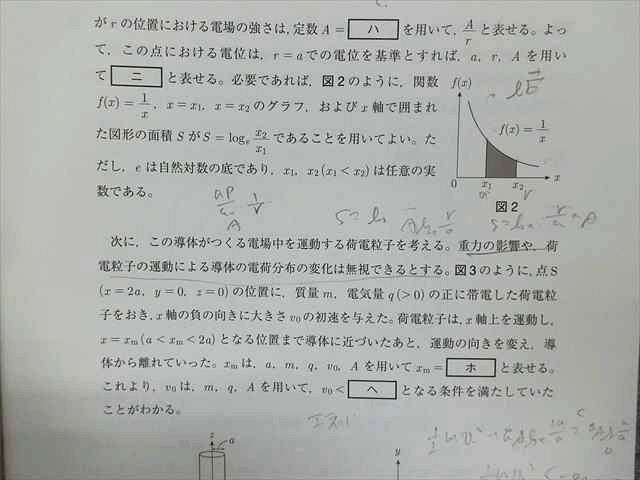 が r の位置における電場の強さは, 定数 A = ハ を用いて, A/r と表せる。よっ
て, この点における電位は, r = a での電位を基準とすれば, a, r, A を用い
て ニ と表せる。必要であれば, 図2のように, 関数
f(x) = 1/x, x = x₁, x = x₂ のグラフ, および x 軸で囲まれ
た図形の面積 S が S = logₑ x₂/x₁ であることを用いてよい。た
だし, e は自然対数の底であり, x₁, x₂ (x₁ < x₂) は任意の実
数である。
f(x)
f(x) = 1/x
0 x₁ x₂ x
図2
次に, この導体がつくる電場中を運動する荷電粒子を考える。重力の影響や, 荷
電粒子の運動による導体の電荷分布の変化は無視できるとする。図3のように, 点 S
(x = 2a, y = 0, z = 0) の位置に, 質量 m, 電気量 q (> 0) の正に帯電した荷電粒
子をおき, x 軸の負の向きに大きさ v₀ の初速を与えた。荷電粒子は, x 軸上を運動し,
x = xₘ (a < xₘ < 2a) となる位置まで導体に近づいたあと, 運動の向きを変え, 導
体から離れていった。xₘ は, a, m, q, v₀, A を用いて xₘ = ホ と表せる。
これより, v₀ は, m, q, A を用いて, v₀ < ヘ となる条件を満たしていた
ことがわかる。
z
a
y